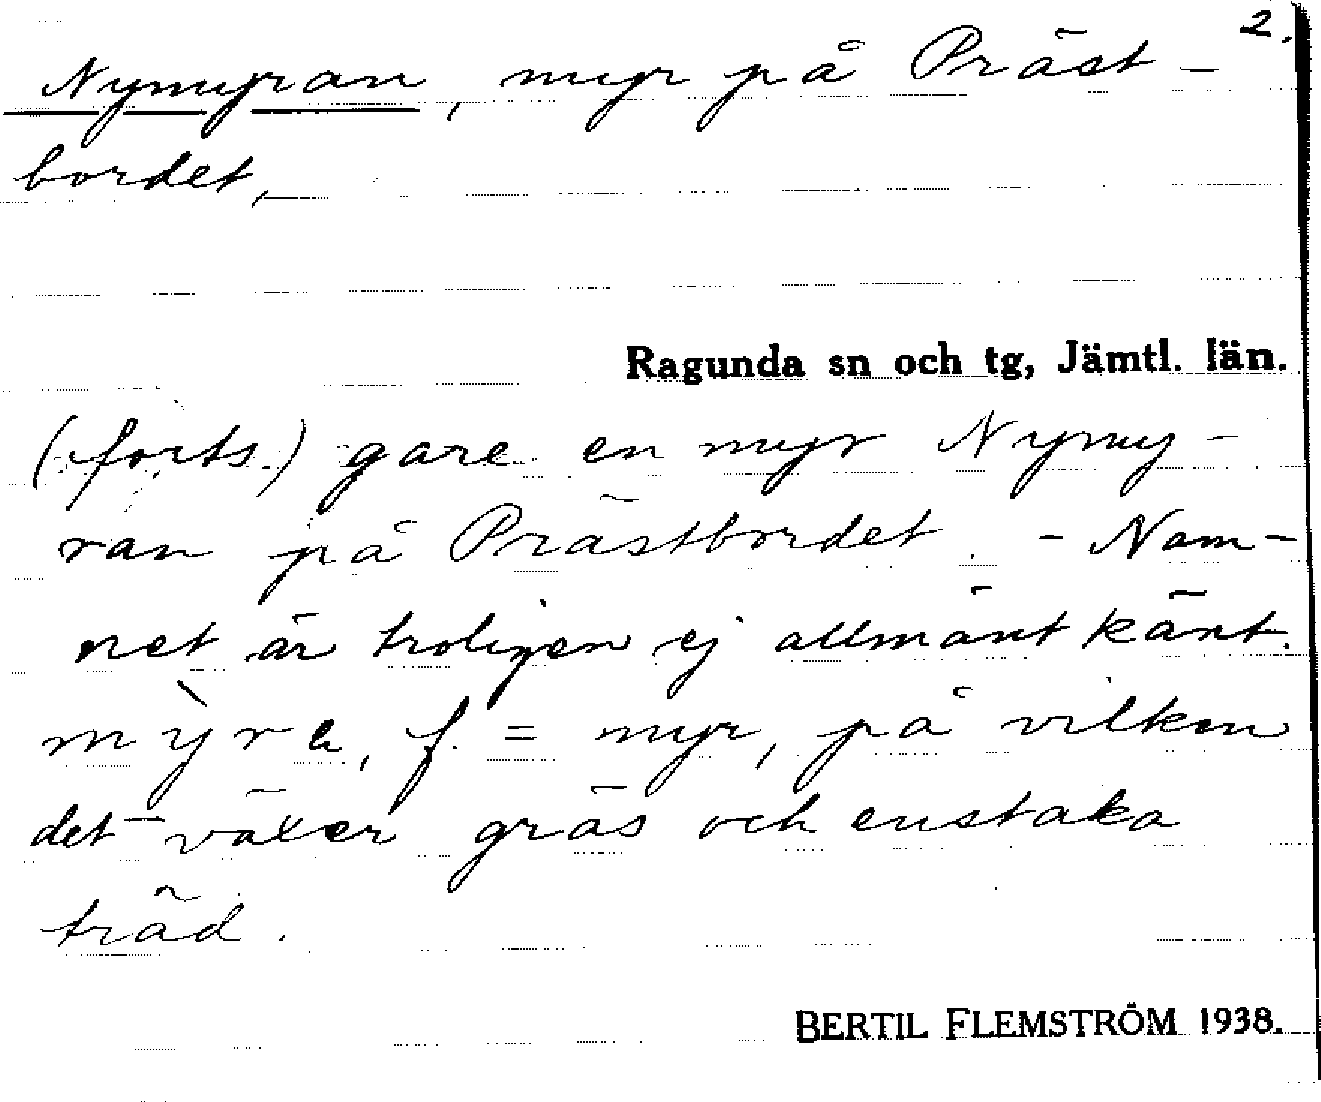 2.
Nymyran, myr på Präst-
bordet,
Ragunda sn och tg, Jämtl. län.
(forts.) gare en myr Nymy-
ran på Prästbordet. - Nam-
net är troligen ej allmänt känt.
mỳra, f. = myr, på vilken
det växer gräs och enstaka
träd.
BERTIL FLEMSTRÖM 1938.